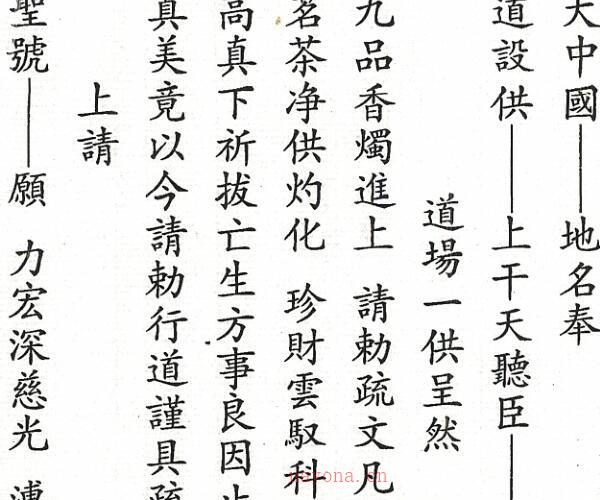 大中國——地名奉
道設供——上干天聽臣——
道場一供呈然
九品香燭進上 請勅疏文凡
茗茶净供灼化 珍財雲馭科
高真下祈拔亡生方事良因
真美竟以今請勅行道謹具疏
上請
聖號——願 力宏深慈光
nayona.cn